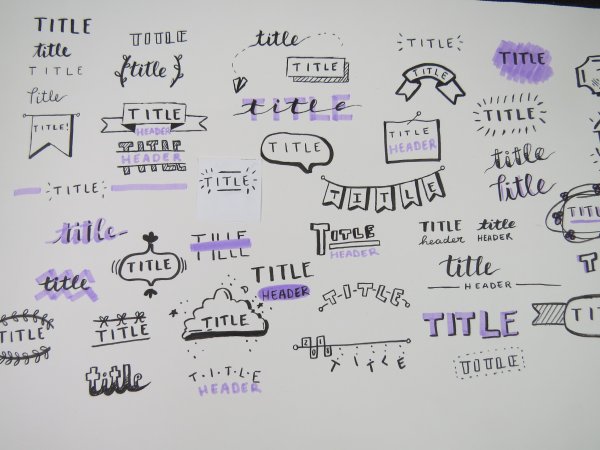 TITLE
title
TITLE
title
TITLE!
TITLE
title
TITLE
HEADER
TITLE
HEADER
TITLE
title
TITLE
title
TITLE
TITLE
TITLE
TITLE
HEADER
TITLE
TITLE
TITLE
title
title
TITLE
TITLE
HEADER
TITLE
TITLE
HEADER
TITLE
header
title
HEADER
title
HEADER
title
title
TITLE
title
TITLE
TITLE
TITLE
HEADER
TITLE
TITLE
title
TITLE
TITLE
TITLE
HEADER
2 0 1 8
TITLE
TITLE
TITLE